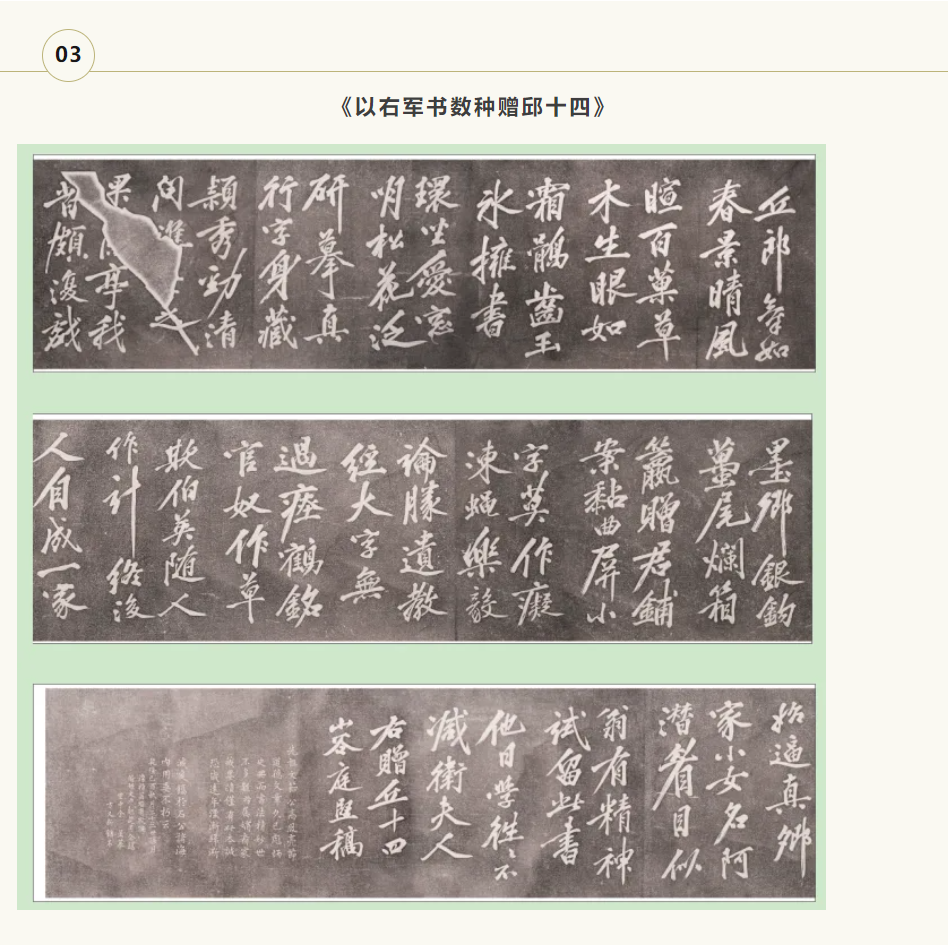 03
《以右军书数种赠邱十四》
丘郎氣如
春景晴風
暄百菓草
木生眼如
霜鶻齒玉
氷擁書
環坐愛窓
明松花泛
研摹真
行字身藏
穎秀勁清
問誰之
果亭我
昔頗復戲
墨卿銀鉤
蠆尾爛箱
籯贈君鋪
案黏曲屏小
字莫作癡
凍蠅樂毅
論勝遺教
經大字無
過瘞鶴銘
官奴作草
欺伯英隨人
作計終後
人自成一家
始逼真卿
家小女名阿
潛眉目似
翁有精神
試留此書
他日學往〻不
減衛夫人
右贈丘十四
山谷庭堅稿